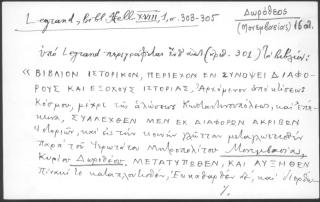 Legrand, Bibl. Hell. XVIII, 1, σ. 303-305
Δωρόθεος
(Μονεμβασίας) 16 αι.
ὑπὸ Legrand περιγράφεται (ἀριθ. 301) τὸ βιβλίον:
« ΒΙΒΛΙΟΝ ΙΣΤΟΡΙΚΟΝ, ΠΕΡΙΕΧΟΝ ΕΝ ΣΥΝΟΨΕΙ ΔΙΑΦΟ-
ΡΟΥΣ ΚΑΙ ΕΞΟΧΟΥΣ ΙΣΤΟΡΙΑΣ, Ἀρχόμενον ἀπὸ κτίσεως
Κόσμου, μέχρι τῆς ἁλώσεως Κωνσταντινουπόλεως, καὶ ἐπέ-
κεινα, ΣΥΛΛΕΧΘΕΝ ΜΕΝ ΕΚ ΔΙΑΦΟΡΩΝ ΑΚΡΙΒΩΝ
Ἱστοριῶν, καὶ εἰς τὴν κοινὴν γλῶτταν μεταγλωττισθὲν
παρὰ τοῦ Ἱερωτάτου Μητροπολίτου Μονεμβασίας,
Κυρίου Δωροθέου. ΜΕΤΑΤΥΠΩΘΕΝ, ΚΑΙ ΑΥΞΗΘΕΝ
Πίνακί τε καταπλουτισθέν,